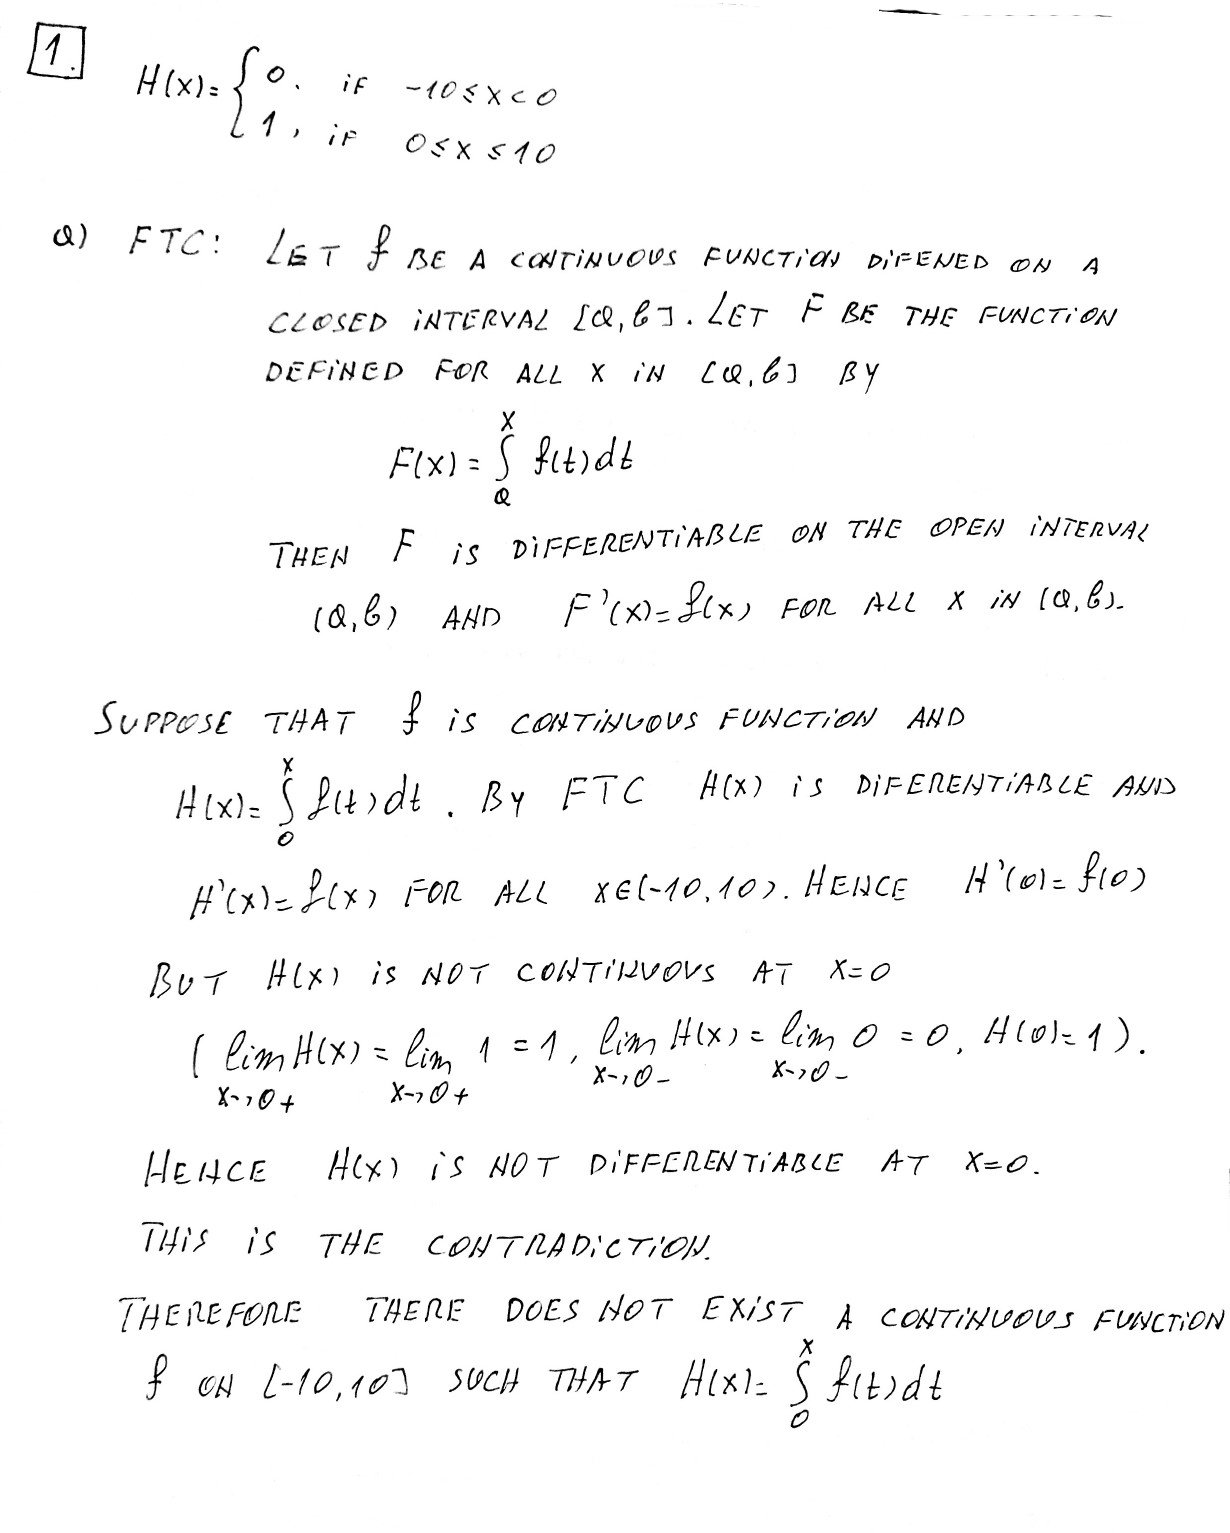 1.
H(x)= { 0. if -10≤x<0
1, if 0≤x≤10
a) FTC: LET f BE A CONTINUOUS FUNCTION DIFENED ON A
CLOSED INTERVAL [a,b]. LET F BE THE FUNCTION
DEFINED FOR ALL X IN [a,b] BY
F(x)= ∫_a^x f(t)dt
THEN F IS DIFFERENTIABLE ON THE OPEN INTERVAL
(a,b) AND F'(x)=f(x) FOR ALL X IN (a,b).
SUPPOSE THAT f IS CONTINUOUS FUNCTION AND
H(x)= ∫_0^x f(t)dt. BY FTC H(x) IS DIFERENTIABLE AND
H'(x)=f(x) FOR ALL x∈(-10,10). HENCE H'(0)=f(0)
BUT H(x) IS NOT CONTINUOUS AT X=0
( lim_{x→0+} H(x) = lim_{x→0+} 1 = 1, lim_{x→0-} H(x) = lim_{x→0-} 0 = 0, H(0)=1 ).
HENCE H(x) IS NOT DIFFERENTIABLE AT X=0.
THIS IS THE CONTRADICTION.
THEREFORE THERE DOES NOT EXIST A CONTINUOUS FUNCTION
f ON [-10,10] SUCH THAT H(x)= ∫_0^x f(t)dt